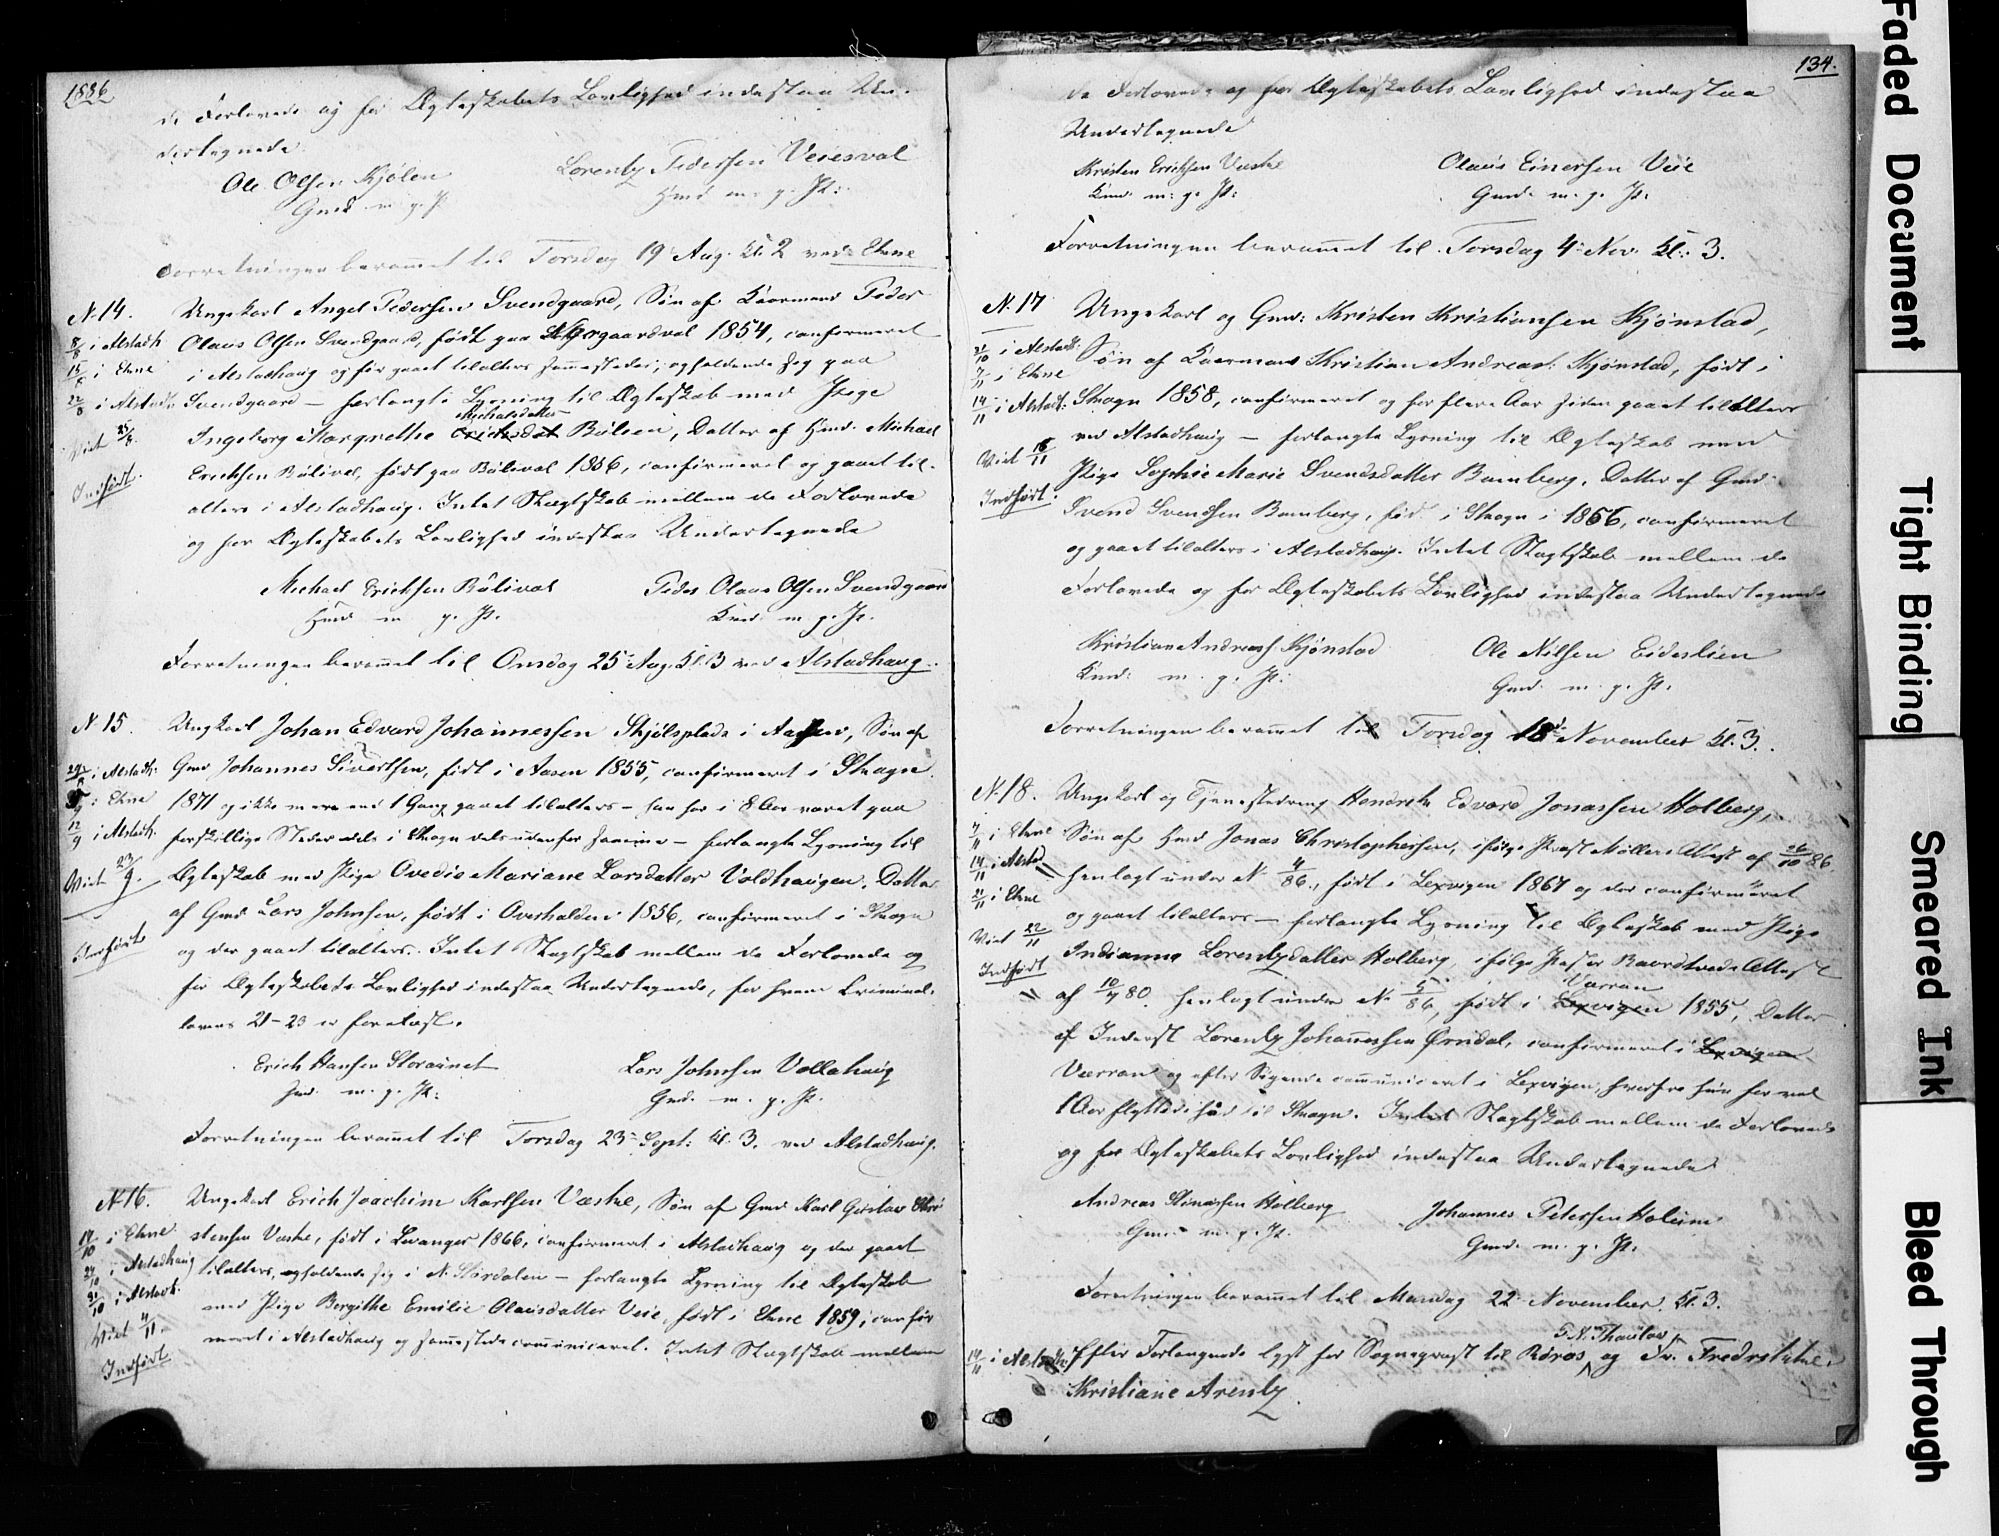 1886
de Forlovede og for Ægteskabets Lovlighed indestaa Un-
dertegnede
Ole Olsen Kjölen Lorentz Pedersen Veiesval
Gmd m. p. P. Hmd m. p. P.
Forretningen berammet til Torsdag 19 Aug. Kl. 2 ved Ekne
N. 14. Ungekarl Angel Pedersen Svendgaard, Søn af Kaarmand Peder
8/8 i Alstadh. Olaus Olsen Svendgaard, født paa gaardval 1854, confirmeret
15/8 i Ekne i Alstadhaug og før gaaet tilalters sammesteds, opholdende sig paa
22/8 i Alstadh. Svendgaard – forlangte Lysning til Ægteskab med Pige
Michalsdatter
Viet 25/8. Ingeborg Margrethe Ericksdat Bölien, Datter af Hmd. Michael
Indført. Ericksen Bölival, født paa Bölival 1856, confirmeret og gaaet til-
alters i Alstadhaug. Intet Slægtskab mellem de Forlovede
og for Ægteskabets Lovlighed indestaa Undertegnede
Michael Ericksen Bölival Peder Olaus Olsen Svendgaard
Hmd m. p. P. Kmd m. p. P.
Forretningen berammet til Onsdag 25 Aug. Kl. 3 ved Alstadhaug.
N. 15. Ungkarl Johan Edvard Johannessen Skjelsplads i Aasen, Søn af
29/8 i Alstadh. Gmd Johannes Sivertsen, født i Aasen 1855, confirmeret i Skogn
5/9 i Ekne 1871 og ikke mere end 1 Gang gaaet tilalters – han har i 8 Aar været paa
12/9 i Alstadh. forskillige Steder dels i Skogn dels udenfor samme – forlangte Lysning til
Viet 23/9. Ægteskab med Pige Ovedia Mariane Larsdatter Voldhaugen, Datter
af Gmd Lars Johnsen, født i Overhalden i 1856, confirmeret i Skogn
Indført og der gaaet tilalters. Intet Slægtskab mellem de Forlovede og
for Ægteskabets Lovlighed indestaa Undertegnede, for hvem Criminal-
lovens 21-23 er forelæst.
Erich Hansen Storaunet Lars Johnsen Vollahaug
Gmd. m. p. P. Gmd. m. p. P.
Forretningen berammet til Torsdag 23 Sept: Kl. 3. ved Alstadhaug.
N. 16. Ungekarl Erich Joachim Karlsen Væske, Søn af Gmd Karl Gustav Chri
17/10 i Ekne stensen Væske, født i Levanger 1866, confirmeret i Alstadhaug og der gaaet
24/10 i Alstadhaug tilalters, opholdende sig i N. Stördalen – forlangte Lysning til Ægteskab
31/10 i Alstadh. med Pige Bergithe Emilie Olausdatter Veie, født i Ekne 1859, confir
Viet 4/11. meret i Alstadhaug og sammesteds communiceret. Intet Slægtskab mellem
Indført
134.
de Forlovede og for Ægteskabets Lovlighed indestaa
Undertegnede
Kristen Ericksen Væske Olaus Einersen Veie
Kmd. m. p. P. Gmd. m. p. P.
Forretningen berammet til Torsdag 4 Nov. Kl. 3.
N. 17 Ungekarl og Gmd: Kristen Kristiansen Kjønstad,
31/10 i Alstadh: Søn af Kaarmand Kristian Andreas. Kjønstad, født i
7/11 i Ekne
14/11 i Alstadh: Skogn 1858, confirmeret og for flere Aar siden gaaet tilalters
ved Alstadhaug – forlangte Lysning til Ægteskab med
Viet 18/11 Pige Sophie Marie Svendsdatter Bamberg, Datter af Gmd.
Indført. Svend Svendsen Bamberg, fød. i Skogn i 1866, confirmeret
og gaaet tilalters i Alstadhaug. Intet Slægtskab mellem de
Forlovede og for Ægteskabets Lovlighed indestaa Undertegnede
Kristian Andreas Kjönstad Ole Nilsen Eideslien
Kmd: m. p. P: Gmd. m. p. P.
Forretningen berammet til Torsdag 18 November Kl. 3.
N. 18. Ungekarl og Tjenestedreng Hendrik Edvard Jonassen Holberg,
7/11 i Ekne Søn af Hmd Jonas Christophersen, ifølge Provst Møllers Attest af 26/10 86
14/11 i Alstad henlagt under N. 4/86., født i Lexvigen 1867 og der confirmeret
21/11 i Ekne og gaaet tilalters – forlangte Lysning til Ægteskab med Pige
Viet 22/11 Indianna Lorentzdatter Holberg, ifølge Attest
Indført Værran
af 10/7 80. henlagt under N. 5/86, født i Lexvigen 1855, Datter
af Inderst Lorentz Johannessen Ørndal, confirmeret i Lexvigen
Værran og efter Sigende communiceret i Lexvigen, hvorfra hun for vel
1 Aar flyttede hid til Skogn. Intet Slægtskab mellem de Forlovede
og for Ægteskabets Lovlighed indestaa Undertegnede
Andreas Holberg Johannes Petersen Holum
Gmd. m. p. P. Gmd. m. p. P.
Forretningen berammet til Mandag 22 November Kl. 3.
T. N. Thaulow
14/11 i Alstadh: Efter Forlangende lyst for Sogneprest til Röros, og Fr. Fredrikke
Kristiane Arentz.
Faded Document
Tight Binding
Smeared Ink
Bleed Through